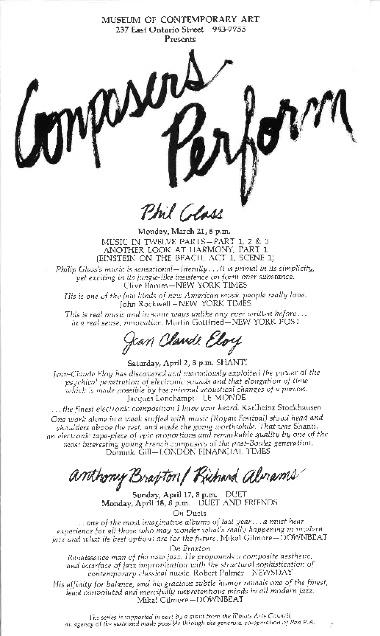 MUSEUM OF CONTEMPORARY ART
237 East Ontario Street 943-7755
Presents
Composers
Perform
Phil Glass
Monday, March 21, 8 p.m.
MUSIC IN TWELVE PARTS—PART 1, 2 & 3
ANOTHER LOOK AT HARMONY, PART 1
(EINSTEIN ON THE BEACH, ACT 1, SCENE 1)
Philip Glass's music is sensational—literally . . . it is primal in its simplicity,
yet exciting in its jungle-like insistence on form over substance.
Clive Barnes—NEW YORK TIMES
His is one of the few kinds of new American music people really love.
John Rockwell—NEW YORK TIMES
This is real music and in some ways unlike any ever written before . . .
in a real sense, innovative. Martin Gottfried—NEW YORK POST
Jean Claude Eloy
Saturday, April 2, 8 p.m. SHANTI
Jean-Claude Eloy has discovered and marvelously exploited the power of the
psychical penetration of electronic sounds and that elongation of time
which is made possible by the internal acoustical changes of a purpose.
Jacques Lonchampt—LE MONDE
. . . the finest electronic composition I have ever heard. Karlheinz Stockhausen
One work alone in a week stuffed with music (Royan Festival) stood head and
shoulders above the rest, and made the going worthwhile. That was Shanti,
an electronic tape-piece of epic proportions and remarkable quality by one of the
most interesting young French composers of the post-Boulez generation.
Dominic Gill—LONDON FINANCIAL TIMES
Anthony Braxton/Richard Abrams
Sunday, April 17, 8 p.m. DUET
Monday, April 18, 8 p.m. DUET AND FRIENDS
On Duets
one of the most imaginative albums of last year . . . a must hear
experience for all those who may wonder what's really happening in modern
jazz and what its best options are for the future. Mikal Gilmore—DOWNBEAT
On Braxton
Renaissance man of the new jazz. He propounds a composite aesthetic,
and interface of jazz improvisation with the structural sophistication of
contemporary classical music. Robert Palmer—NEWSDAY
His affinity for balance, and his gracious subtle humor reveals one of the finest,
least convoluted and mercifully unpretentious minds in all modern jazz.
Mikal Gilmore—DOWNBEAT
The series is supported in part by a grant from the Illinois Arts Council,
an agency of the state and made possible through the generous cooperation of